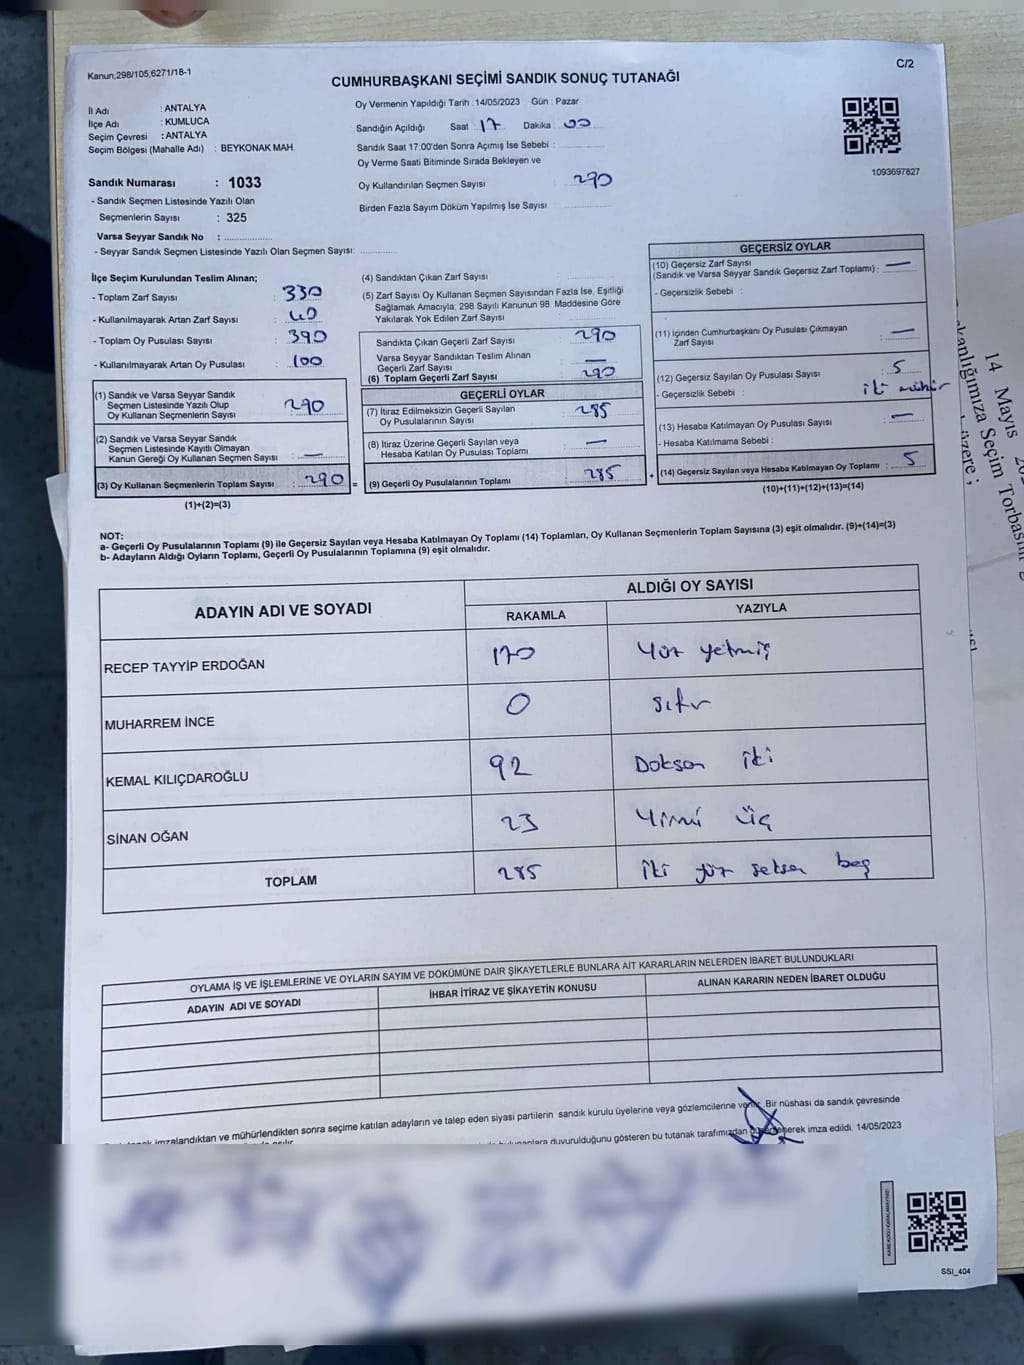 Kanun;298/105;6271/18-1
C/2
CUMHURBAŞKANI SEÇİMİ SANDIK SONUÇ TUTANAĞI
İl Adı : ANTALYA
İlçe Adı : KUMLUCA
Seçim Çevresi : ANTALYA
Seçim Bölgesi (Mahalle Adı) : BEYKONAK MAH.
Sandık Numarası : 1033
- Sandık Seçmen Listesinde Yazılı Olan
Seçmenlerin Sayısı : 325
Varsa Seyyar Sandık No :
- Seyyar Sandık Seçmen Listesinde Yazılı Olan Seçmen Sayısı:
Oy Vermenin Yapıldığı Tarih : 14/05/2023 Gün : Pazar
Sandığın Açıldığı Saat : 17 Dakika : 00
Sandık Saat 17:00'den Sonra Açımış İse Sebebi :
Oy Verme Saati Bitiminde Sırada Bekleyen ve
Oy Kullandırılan Seçmen Sayısı 290
Birden Fazla Sayım Döküm Yapılmış İse Sayısı
1093697827
İlçe Seçim Kurulundan Teslim Alınan;
- Toplam Zarf Sayısı : 330
- Kullanılmayarak Artan Zarf Sayısı : 40
- Toplam Oy Pusulası Sayısı : 390
- Kullanılmayarak Artan Oy Pusulası : 100
(1) Sandık ve Varsa Seyyar Sandık
Seçmen Listesinde Yazılı Olup
Oy Kullanan Seçmenlerin Sayısı : 290
(2) Sandık ve Varsa Seyyar Sandık
Seçmen Listesinde Kayıtlı Olmayan
Kanun Gereği Oy Kullanan Seçmen Sayısı : —
(3) Oy Kullanan Seçmenlerin Toplam Sayısı : 290 =
(1)+(2)=(3)
(4) Sandıktan Çıkan Zarf Sayısı
(5) Zarf Sayısı Oy Kullanan Seçmen Sayısından Fazla İse, Eşitliği
Sağlamak Amacıyla; 298 Sayılı Kanunun 98. Maddesine Göre
Yakılarak Yok Edilen Zarf Sayısı
Sandıkta Çıkan Geçerli Zarf Sayısı : 290
Varsa Seyyar Sandıktan Teslim Alınan
Geçerli Zarf Sayısı : —
(6) Toplam Geçerli Zarf Sayısı : 290
GEÇERLİ OYLAR
(7) İtiraz Edilmeksizin Geçerli Sayılan
Oy Pusulalarının Sayısı : 285
(8) İtiraz Üzerine Geçerli Sayılan veya
Hesaba Katılan Oy Pusulası Toplamı : —
(9) Geçerli Oy Pusulalarının Toplamı : 285 +
GEÇERSİZ OYLAR
(10) Geçersiz Zarf Sayısı
(Sandık ve Varsa Seyyar Sandık Geçersiz Zarf Toplamı) : —
- Geçersizlik Sebebi :
(11) İçinden Cumhurbaşkanı Oy Pusulası Çıkmayan
Zarf Sayısı : —
(12) Geçersiz Sayılan Oy Pusulası Sayısı : 5
- Geçersizlik Sebebi : iki mühür
(13) Hesaba Katılmayan Oy Pusulası Sayısı : —
- Hesaba Katılmama Sebebi :
(14) Geçersiz Sayılan veya Hesaba Katılmayan Oy Toplamı : 5
(10)+(11)+(12)+(13)=(14)
NOT:
a- Geçerli Oy Pusulalarının Toplamı (9) ile Geçersiz Sayılan veya Hesaba Katılmayan Oy Toplamı (14) Toplamları, Oy Kullanan Seçmenlerin Toplam Sayısına (3) eşit olmalıdır. (9)+(14)=(3)
b- Adayların Aldığı Oyların Toplamı, Geçerli Oy Pusulalarının Toplamına (9) eşit olmalıdır.
ADAYIN ADI VE SOYADI ALDIĞI OY SAYISI
RAKAMLA YAZIYLA
RECEP TAYYİP ERDOĞAN 170 Yüz yetmiş
MUHARREM İNCE 0 sıfır
KEMAL KILIÇDAROĞLU 92 Doksan iki
SİNAN OĞAN 23 Yirmi üç
TOPLAM 285 İki yüz seksen beş
OYLAMA İŞ VE İŞLEMLERİNE VE OYLARIN SAYIM VE DÖKÜMÜNE DAİR ŞİKAYETLERLE BUNLARA AİT KARARLARIN NELERDEN İBARET BULUNDUKLARI
ADAYIN ADI VE SOYADI İHBAR İTİRAZ VE ŞİKAYETİN KONUSU ALINAN KARARIN NEDEN İBARET OLDUĞU
imzalandıktan ve mühürlendikten sonra seçime katılan adayların ve talep eden siyasi partilerin sandık kurulu üyelerine veya gözlemcilerine Bir nüshası da sandık çevresinde
duyurulduğunu gösteren bu tutanak tarafımızdan imza edildi. 14/05/2023
SSI_404
14 Mayıs
Seçim Torbasın
üzere ;